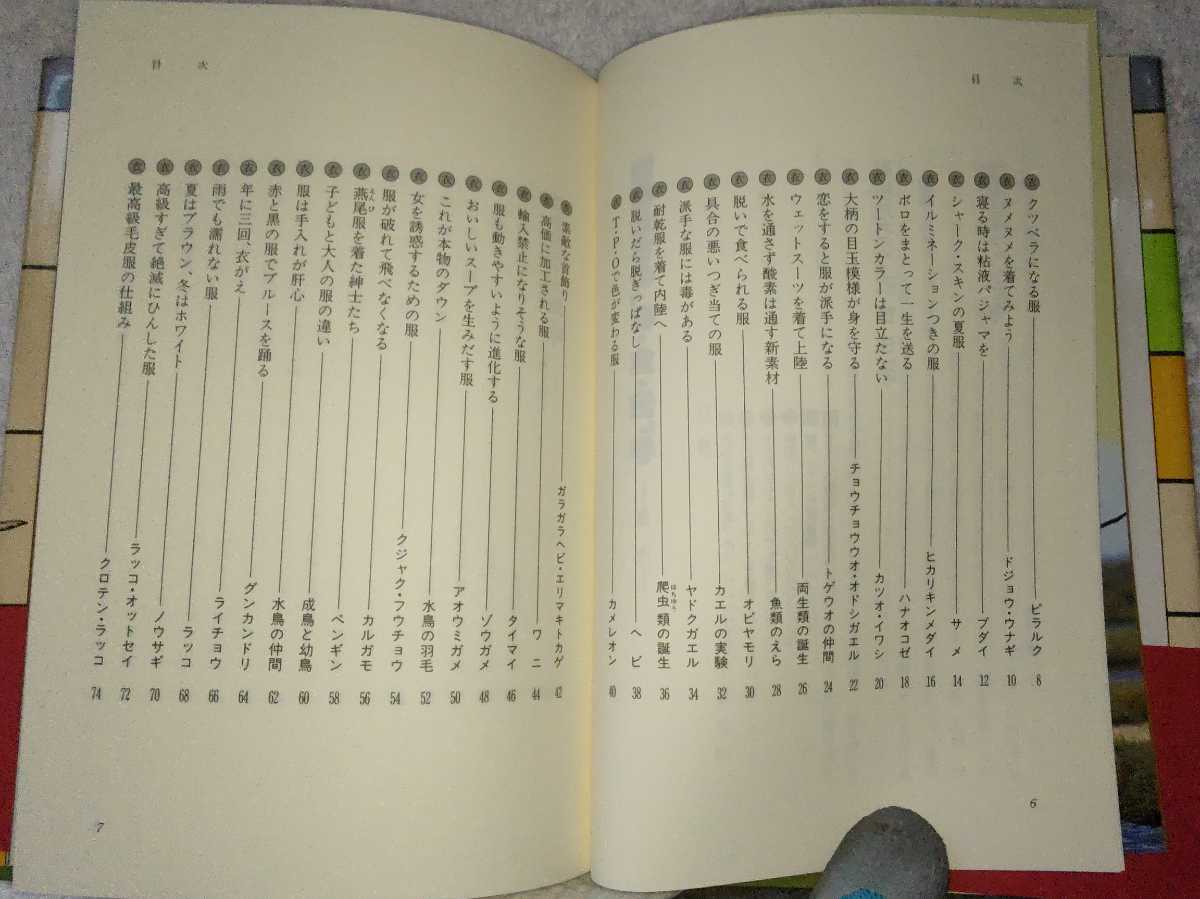 目次
衣 クツベラになる服 ピラルク 8
衣 ヌメヌメを着てみよう ドジョウ・ウナギ 10
衣 寝る時は粘液パジャマを ブダイ 12
衣 シャーク・スキンの夏服 サメ 14
衣 イルミネーションつきの服 ヒカリキンメダイ 16
衣 ボロをまとって一生を送る ハナオコゼ 18
衣 ツートンカラーは目立たない カツオ・イワシ 20
衣 大柄の目玉模様が身を守る チョウチョウウオ・オドシガエル 22
衣 恋をすると服が派手になる トゲウオの仲間 24
衣 ウェットスーツを着て上陸 両生類の誕生 26
衣 水を通さず酸素は通す新素材 魚類のえら 28
衣 脱いで食べられる服 オビヤモリ 30
衣 具合の悪いつぎ当ての服 カエルの実験 32
衣 派手な服には毒がある ヤドクガエル 34
衣 耐乾服を着て内陸へ 爬虫類の誕生 36
はちゅう
衣 脱いだら脱ぎっぱなし ヘビ 38
衣 T・P・Oで色が変わる服 カメレオン 40
6
目次
衣 素敵な首飾り ガラガラヘビ・エリマキトカゲ 42
衣 高価に加工される服 ワニ 44
衣 輸入禁止になりそうな服 タイマイ 46
衣 服も動きやすいように進化する ゾウガメ 48
衣 おいしいスープを生みだす服 アオウミガメ 50
衣 これが本物のダウン 水鳥の羽毛 52
衣 女を誘惑するための服 クジャク・フウチョウ 54
衣 服が破れて飛べなくなる カルガモ 56
衣 燕尾服を着た紳士たち ペンギン 58
えんび
衣 子どもと大人の服の違い 成鳥と幼鳥 60
衣 服は手入れが肝心 水鳥の仲間 62
衣 赤と黒の服でブルースを踊る グンカンドリ 64
衣 年に三回、衣がえ ライチョウ 66
衣 雨でも濡れない服 ラッコ 68
衣 夏はブラウン、冬はホワイト ノウサギ 70
衣 高級すぎて絶滅にひんした服 ラッコ・オットセイ 72
衣 最高級毛皮服の仕組み クロテン・ラッコ 74
7